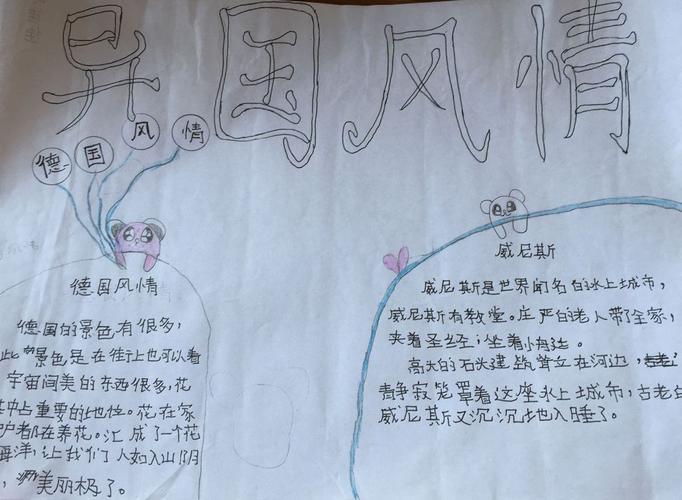 异国风情
德国风情
德国风情
德国的景色有很多,
此景色是在街上也可以看
宇宙间美的东西很多,花
其中占重要的地位。花在家
户都在养花。汇成了一个花
海洋,让我们人如入山阴
,美丽极了。
威尼斯
威尼斯是世界闻名的水上城市,
威尼斯有教堂。庄严的老人带了全家,
夹着圣经坐着小舟边。
高大的石头建筑耸立在河边,
静寂笼罩着这座水上城市,古老白
威尼斯又沉沉地入睡了。